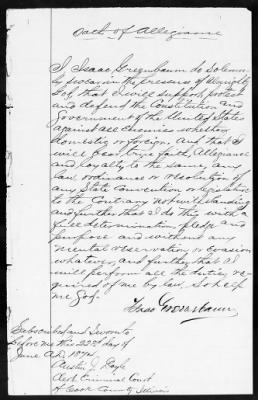 Oath of Allegiance
I Isaac Greenbaum do solemn-
ly swear in the presence of Almighty
God, that I will support, protect
and defend the Constitution and
Government of the United States
against all enemies whether
domestic or foreign. And that I
will bear true faith, Allegiance
and loyalty to the same, any
law, ordinance or resolution of
any State Convention or legislature
to the Contrary notwithstanding
and further that I do this with a
full determination pledge and
purpose and without any
mental observation or evasion
whatever, and further that I
will perform all the duties re-
quired of me by law, So help
me God.
Isaac Greenebaum
Subscribed and Sworn to
before me this 22nd day of
June A.D. 1874
Austin J. Doyle
Clerk Criminal Court
of Cook County Illinois